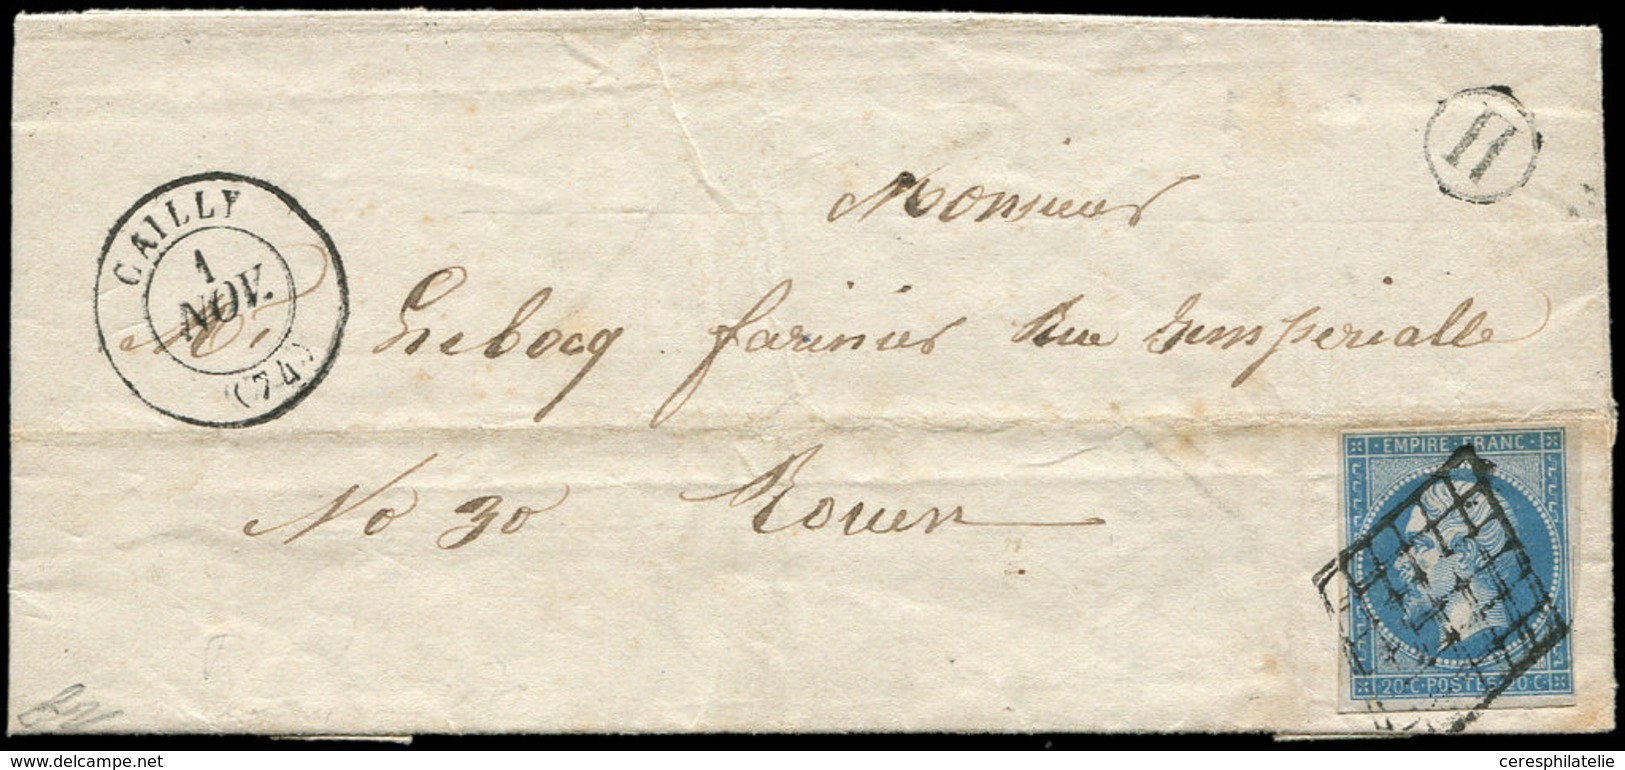 H
CAILLY
1
NOV.
(74)
Monsieur
Mr Lebocq farinier Rue Imperialle
No 30 Rouen
EMPIRE FRANC
20 C POSTES 20 C
delcampe.net
ceresphilatelie